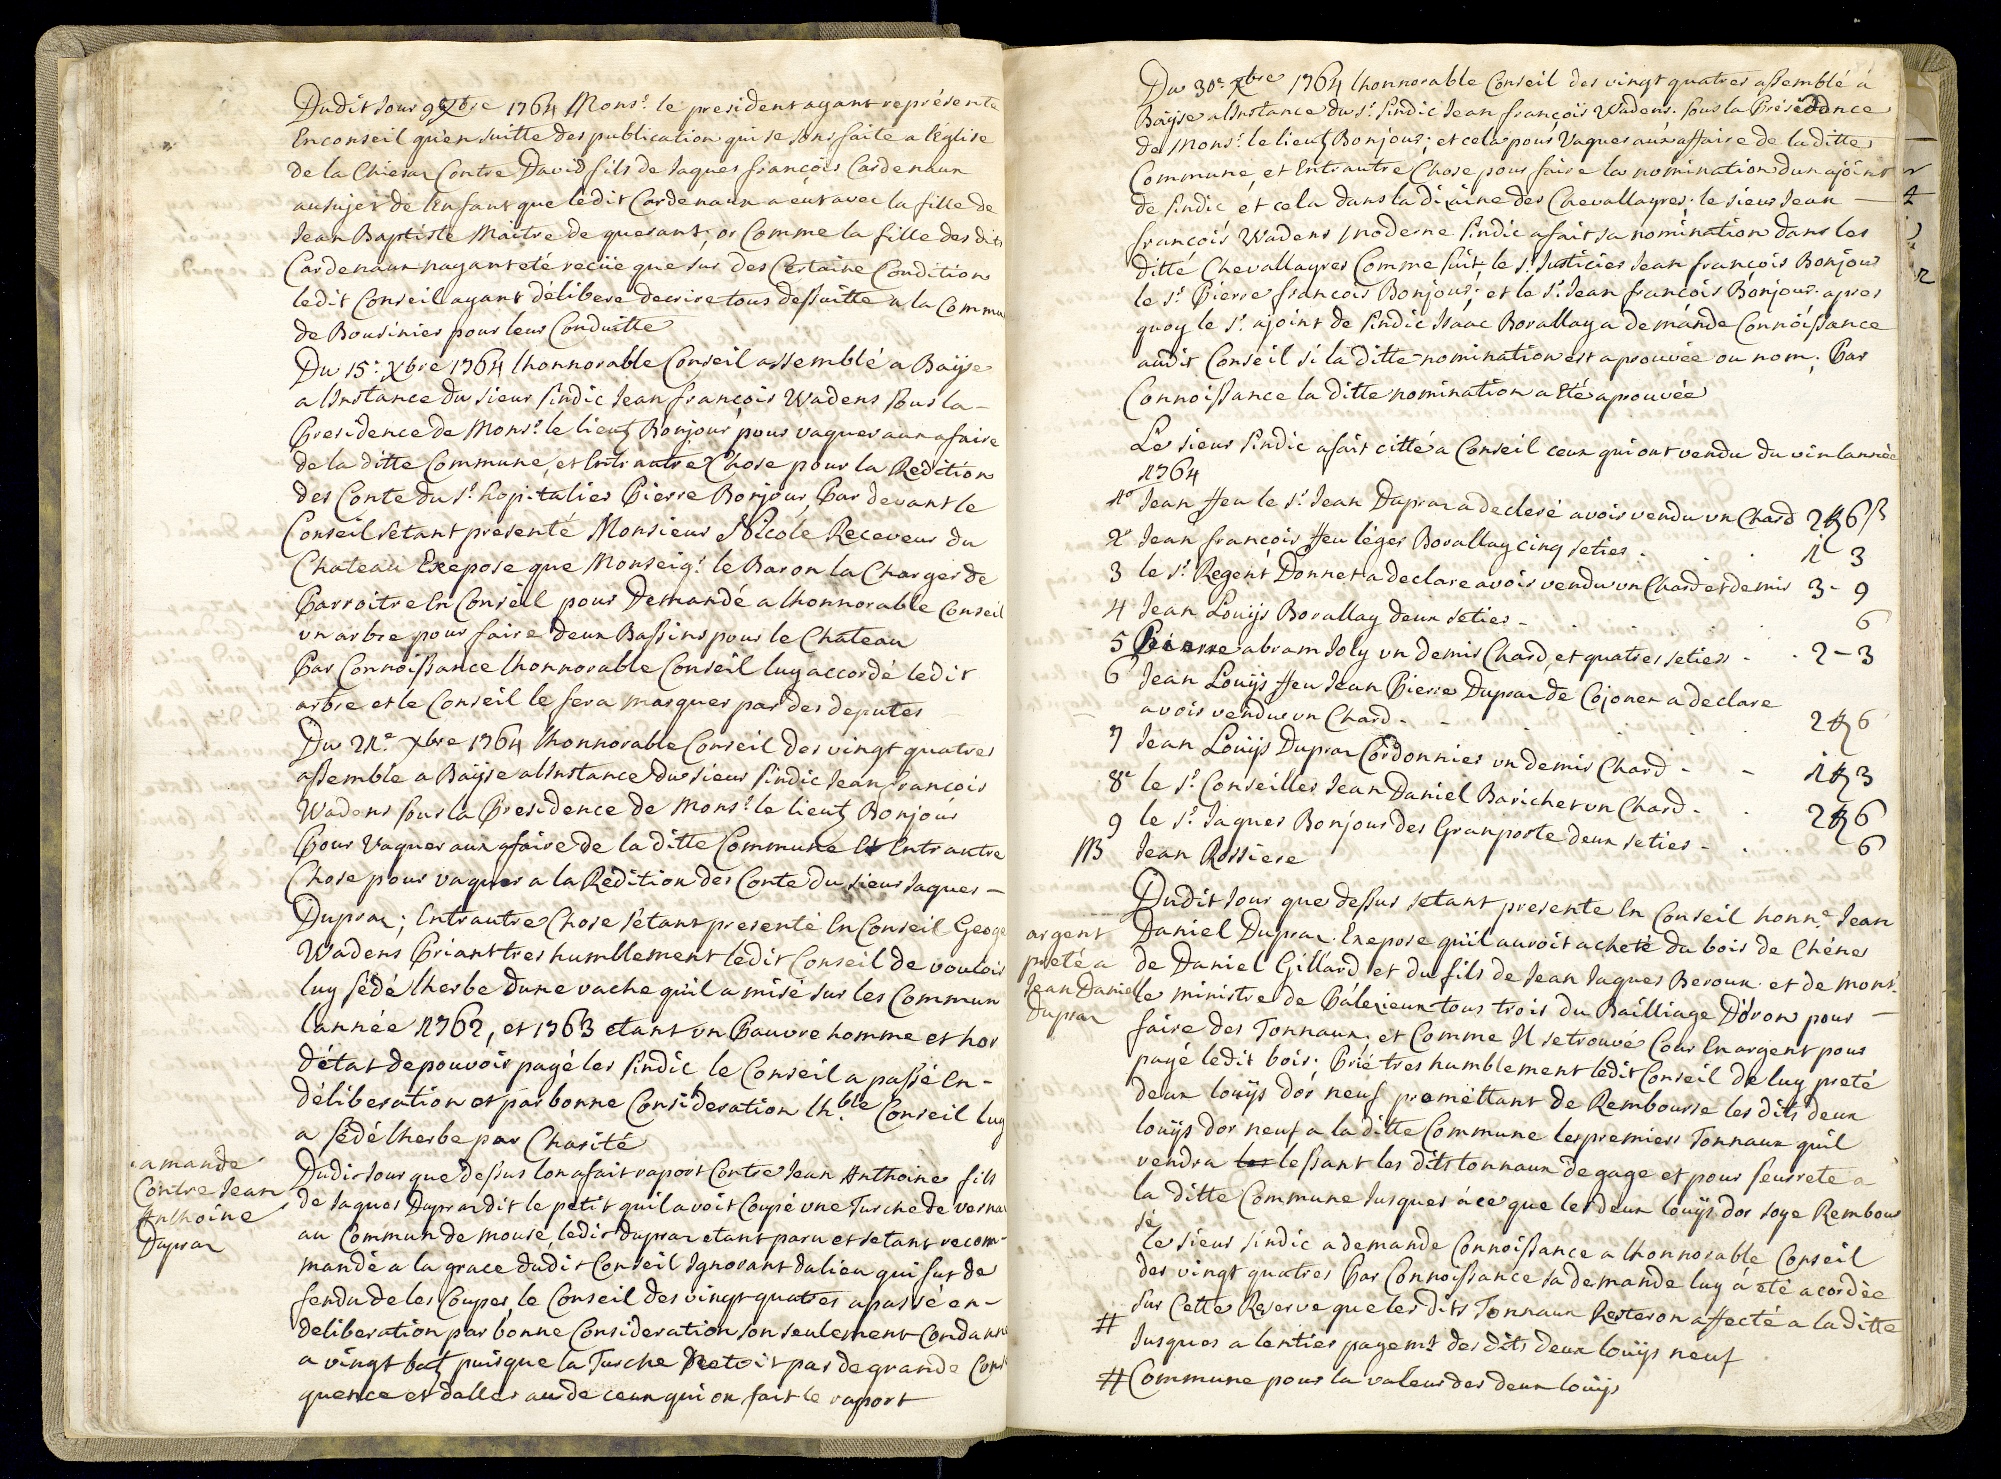 Dudit Jour 9 Xbre 1764 Mons.r le president ayant représente
En conseil qu'en suitte des publication qui se sons faite a l'église
de la Chiesaz Contre David fils de Jaques françois Cardenaux
au sujet de l'enfant que ledit Cardenaux a eut avec la fille de
Jean Baptiste Maitre de quesant; or Comme la fille des dits
Cardenaux nayant eté reciie que sur des Certaine Condition
ledit Conseil ayant délibere decrire tous dessuitte a la Commu
de Bousinier pour leur Conduitte
Du 15.e Xbre 1764 lhonnorable Conseil assemblé a Baijse
a lInstance du sieur sindic Jean françois Wadens sous la –
Presidence de Mons.r le lieut Bonjour pour vaquer aux afaire
de la ditte Commune, et Entrautre Chose pour la Redition
des Conte du s.r hopitalier Pierre Bonjour, Par devant le
Conseil setant presenté Monsieur Nicole Receveur du
Chateau Exepose que Monseig.r le Baron la Charger de
Parroitre En Conseil pour Demandé a lhonnorable Conseil
un arbre pour faire deux Bassins pour le Chateau
Par Connoissance lhonnorable Conseil luy accordé ledit
arbre et le Conseil le fera marquer par des deputes
Du 21.e Xbre 1764 lhonnorable Conseil des vingt quatres
assemble a Baijse alInstance du sieur sindic Jean françois
Wadens sous la Presidence de Mons.r le lieut Bonjour
Pour Vaquer aux afaire de la ditte Commune Et Entrautre
Chose pour vaquer a la Redition des Conte du sieur Jaques –
Dupraz; Entrautre Chose sétant presenté En Conseil George
Wadens Priant tres humblement ledit Conseil de vouloir
luy sédé lherbe dune vache quil a misé sur les Commun
lannée 1762, et 1763 etant un Pauvre homme et hor
détat de pouvoir payé les sindic le Conseil a passé En –
déliberation et par bonne Consideration lh.ble Conseil luy
a sédé lherbe par Charité
amande
Contre Jean
Anthoine
Dupraz
Dudit Jour que dessus lon a fait raport Contre Jean Anthoine fils
de Jaques Dupraz dit le petit quil avoit Coupé une Tusche de vernaz
au Commun de mousé, ledit dupraz etant paru et setant recom-
mandé a la grace dudit Conseil Ignorant du lieu qui fut de
fendu de les Couper, le Conseil des vingt-quatres a passé en –
deliberation par bonne Consideration son seulement Condanné
a vingt batz puisque la Tusche Netoit pas de grande Consé
quence et daller au de ceux qui on fait le raport
Du 30.e Xbre 1764 lhonnorable Conseil des vingt quatres assemblé à
Baijse alInstance du s.r sindic Jean françois Wadens. sous la Présidence
de Mons.r le lieut Bonjour; et cela pour Vaquer aux affaire de la ditte
Commune, et Entrautre Chose pour faire la nomination dun ajoint
de sindic, et cela dans la dizaine des Chevallayres. le sieur Jean –
françois Wadens moderne sindic a fait sa nomination dans les
ditté Chevallayres Comme suit, le s.r Justicier Jean françois Bonjour
le s.r Pierre françois Bonjour; et le s.r Jean françois Bonjour. apres
quoy le s.r ajoint de sindic Isaac Borallay a demánde Connoissance
audit Conseil si la ditte nomination est aprouvée ou nom; Par
Connoissance la ditte nomination a été aprouvée
Le sieur sindic a fait citté a Conseil ceux qui ont vendu du vin lannée
1764
1° Jean ffeu le s.r Jean Dupraz a decleré avoir vendu un Chard 2 ff 6 ß
2° Jean françois ffeu léger Borallay cinq setier . . . 1 3
3 le s.r Regent Donnet a declare avoir vendu un Chard et demis 3 - 9
4 Jean Louijs Borallay deux setier - . . . . 6
5 Pierre abram Joly un demis Chard, et quatres setiers . . 2 – 3
6 Jean Louijs ffeu Jean Pierre Dupraz de Cojonex a declare
avoir vendu un Chard . - . . . . 2 ff 6
7 Jean Louijs Dupraz Cordonnier un demis Chard . - - 1 ff 3
8e le s.r Conseiller Jean Daniel Barichet un Chard . . 2 ff 6
9 le s.r Jaques Bonjour des Granporte deux setier - . . 6
NB Jean Rossiere
argent
preté a
Jean Daniel
Dupraz
Dudit Jour que dessus setant presente En Conseil honn.e Jean
Daniel Dupraz. Exepose qu'il auroit acheté du bois de Chénes
de Daniel Gillard et du fils de Jean Jaques Beroux. et de mons.r
le ministre de Pálezieux tous trois du Bailliage D'óron pour –
faire des Tonnaux, et Comme Il se trouvé Cour En argent pour
payé ledit bois; Prié tres humblement ledit Conseil de luy preté
deux louijs dór neuf prométtant de Rembourse les dits deux
louijs dor neuf a la ditte Commune les premiers Tonnaux quil
vendra les lessant les dits tonnaux de gage et pour seurrete a
la ditte Commune Jusques áce que les deux louijs dor soye Rembour
sé
Le sieur sindic a demande Connoissance a lhonnorable Conseil
des vingt quatres Par Connoissance sa demande luy á été acordée
sur Cette Reserve que les dits Tonnaux Resteron affecté a la ditte
# Jusques a lentier payem.t des dits deux louijs neuf
# Commune pour la valeur des deux louijs